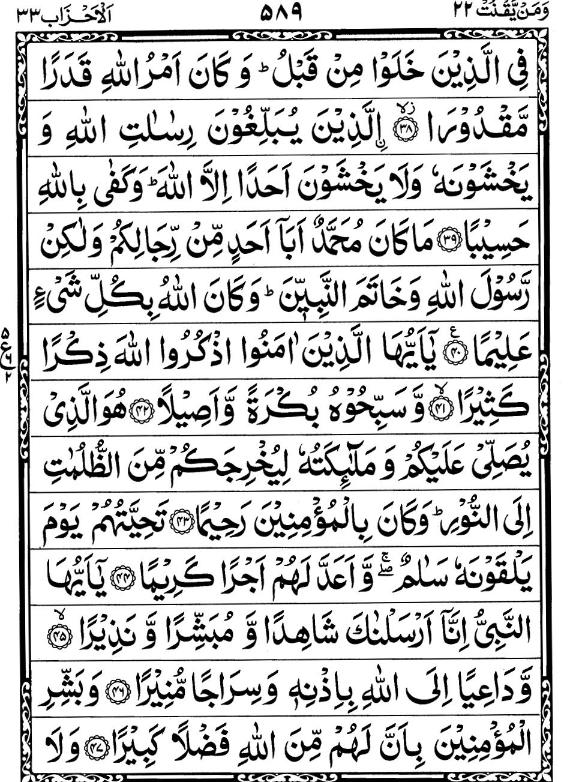 وَمَنْ يَّقْنُتْ ٢٢ ٥٨٩ اَلْاَحْزَاب ٣٣
فِى الَّذِيْنَ خَلَوْا مِنْ قَبْلُ ؕ وَ كَانَ اَمْرُ اللّٰهِ قَدَرًا
مَّقْدُوْرَا ۙ﴿۳۸﴾ اۨلَّذِيْنَ يُبَلِّغُوْنَ رِسٰلٰتِ اللّٰهِ وَ
يَخْشَوْنَهٗ وَلَا يَخْشَوْنَ اَحَدًا اِلَّا اللّٰهَ ؕ وَكَفٰى بِاللّٰهِ
حَسِيْبًا ﴿۳۹﴾ مَا كَانَ مُحَمَّدٌ اَبَاۤ اَحَدٍ مِّنْ رِّجَالِكُمْ وَلٰكِنْ
رَّسُوْلَ اللّٰهِ وَخَاتَمَ النَّبِيّٖنَ ؕ وَكَانَ اللّٰهُ بِكُلِّ شَىْءٍ
عَلِيْمًا ﴿۴۰﴾ۧ يٰۤاَيُّهَا الَّذِيْنَ اٰمَنُوا اذْكُرُوا اللّٰهَ ذِكْرًا
ع ٥ ٦ ٢
كَثِيْرًا ۙ﴿۴۱﴾ وَّ سَبِّحُوْهُ بُكْرَةً وَّاَصِيْلًا ﴿۴۲﴾ هُوَ الَّذِىْ
يُصَلِّىْ عَلَيْكُمْ وَ مَلٰٓئِكَتُهٗ لِيُخْرِجَكُمْ مِّنَ الظُّلُمٰتِ
اِلَى النُّوْرِ ؕ وَكَانَ بِالْمُؤْمِنِيْنَ رَحِيْمًا ﴿۴۳﴾ تَحِيَّتُهُمْ يَوْمَ
يَلْقَوْنَهٗ سَلٰمٌ ۖۚ وَّ اَعَدَّ لَهُمْ اَجْرًا كَرِيْمًا ﴿۴۴﴾ يٰۤاَيُّهَا
النَّبِىُّ اِنَّاۤ اَرْسَلْنٰكَ شَاهِدًا وَّ مُبَشِّرًا وَّ نَذِيْرًا ۙ﴿۴۵﴾
وَّ دَاعِيًا اِلَى اللّٰهِ بِاِذْنِهٖ وَسِرَاجًا مُّنِيْرًا ﴿۴۶﴾ وَ بَشِّرِ
الْمُؤْمِنِيْنَ بِاَنَّ لَهُمْ مِّنَ اللّٰهِ فَضْلًا كَبِيْرًا ﴿۴۷﴾ وَلَا